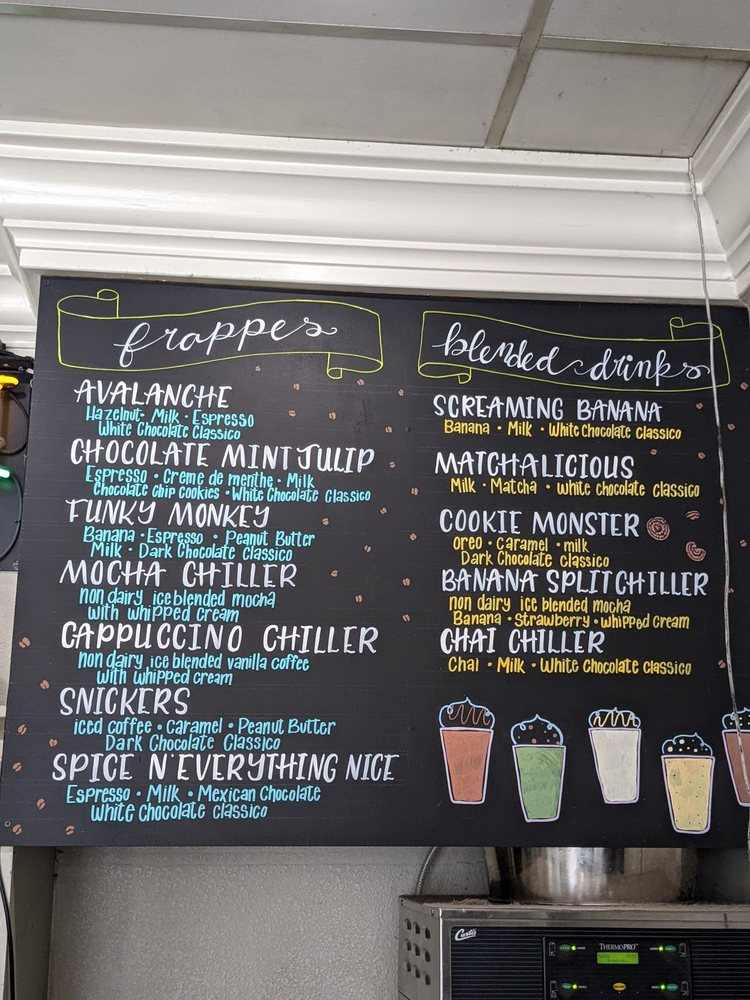 frappes
AVALANCHE
Hazelnut • Milk • Espresso
White Chocolate Classico
CHOCOLATE MINT JULIP
Espresso • Creme de menthe • Milk
Chocolate chip Cookies • White Chocolate Classico
FUNKY MONKEY
Banana • Espresso • Peanut Butter
Milk • Dark Chocolate Classico
MOCHA CHILLER
non dairy ice blended mocha
with whipped cream
CAPPUCCINO CHILLER
non dairy ice blended vanilla coffee
with whipped cream
SNICKERS
iced coffee • Caramel • Peanut Butter
Dark Chocolate Classico
SPICE N' EVERYTHING NICE
Espresso • Milk • Mexican Chocolate
White chocolate classico
blended drinks
SCREAMING BANANA
Banana • Milk • White Chocolate Classico
MATCHALICIOUS
Milk • Matcha • white chocolate classico
COOKIE MONSTER
oreo • Caramel • milk
Dark Chocolate classico
BANANA SPLIT CHILLER
non dairy ice blended mocha
Banana • Strawberry • whipped cream
CHAI CHILLER
Chai • Milk • White Chocolate classico
Curtis
THERMOPRO